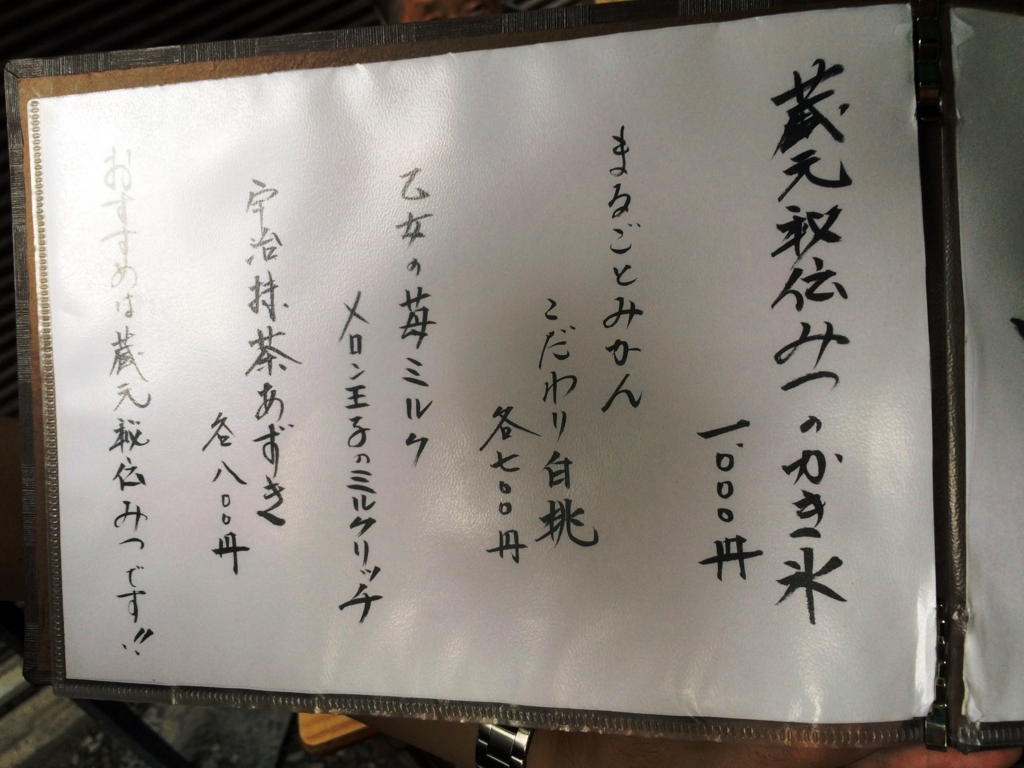 蔵元秘伝みつのかき氷
一、〇〇〇円
まるごとみかん
こだわり白桃
各七〇〇円
乙女の苺ミルク
メロン王子のミルクリッチ
宇治持茶あずき
各八〇〇円
おすすめは蔵元秘伝みつです!!